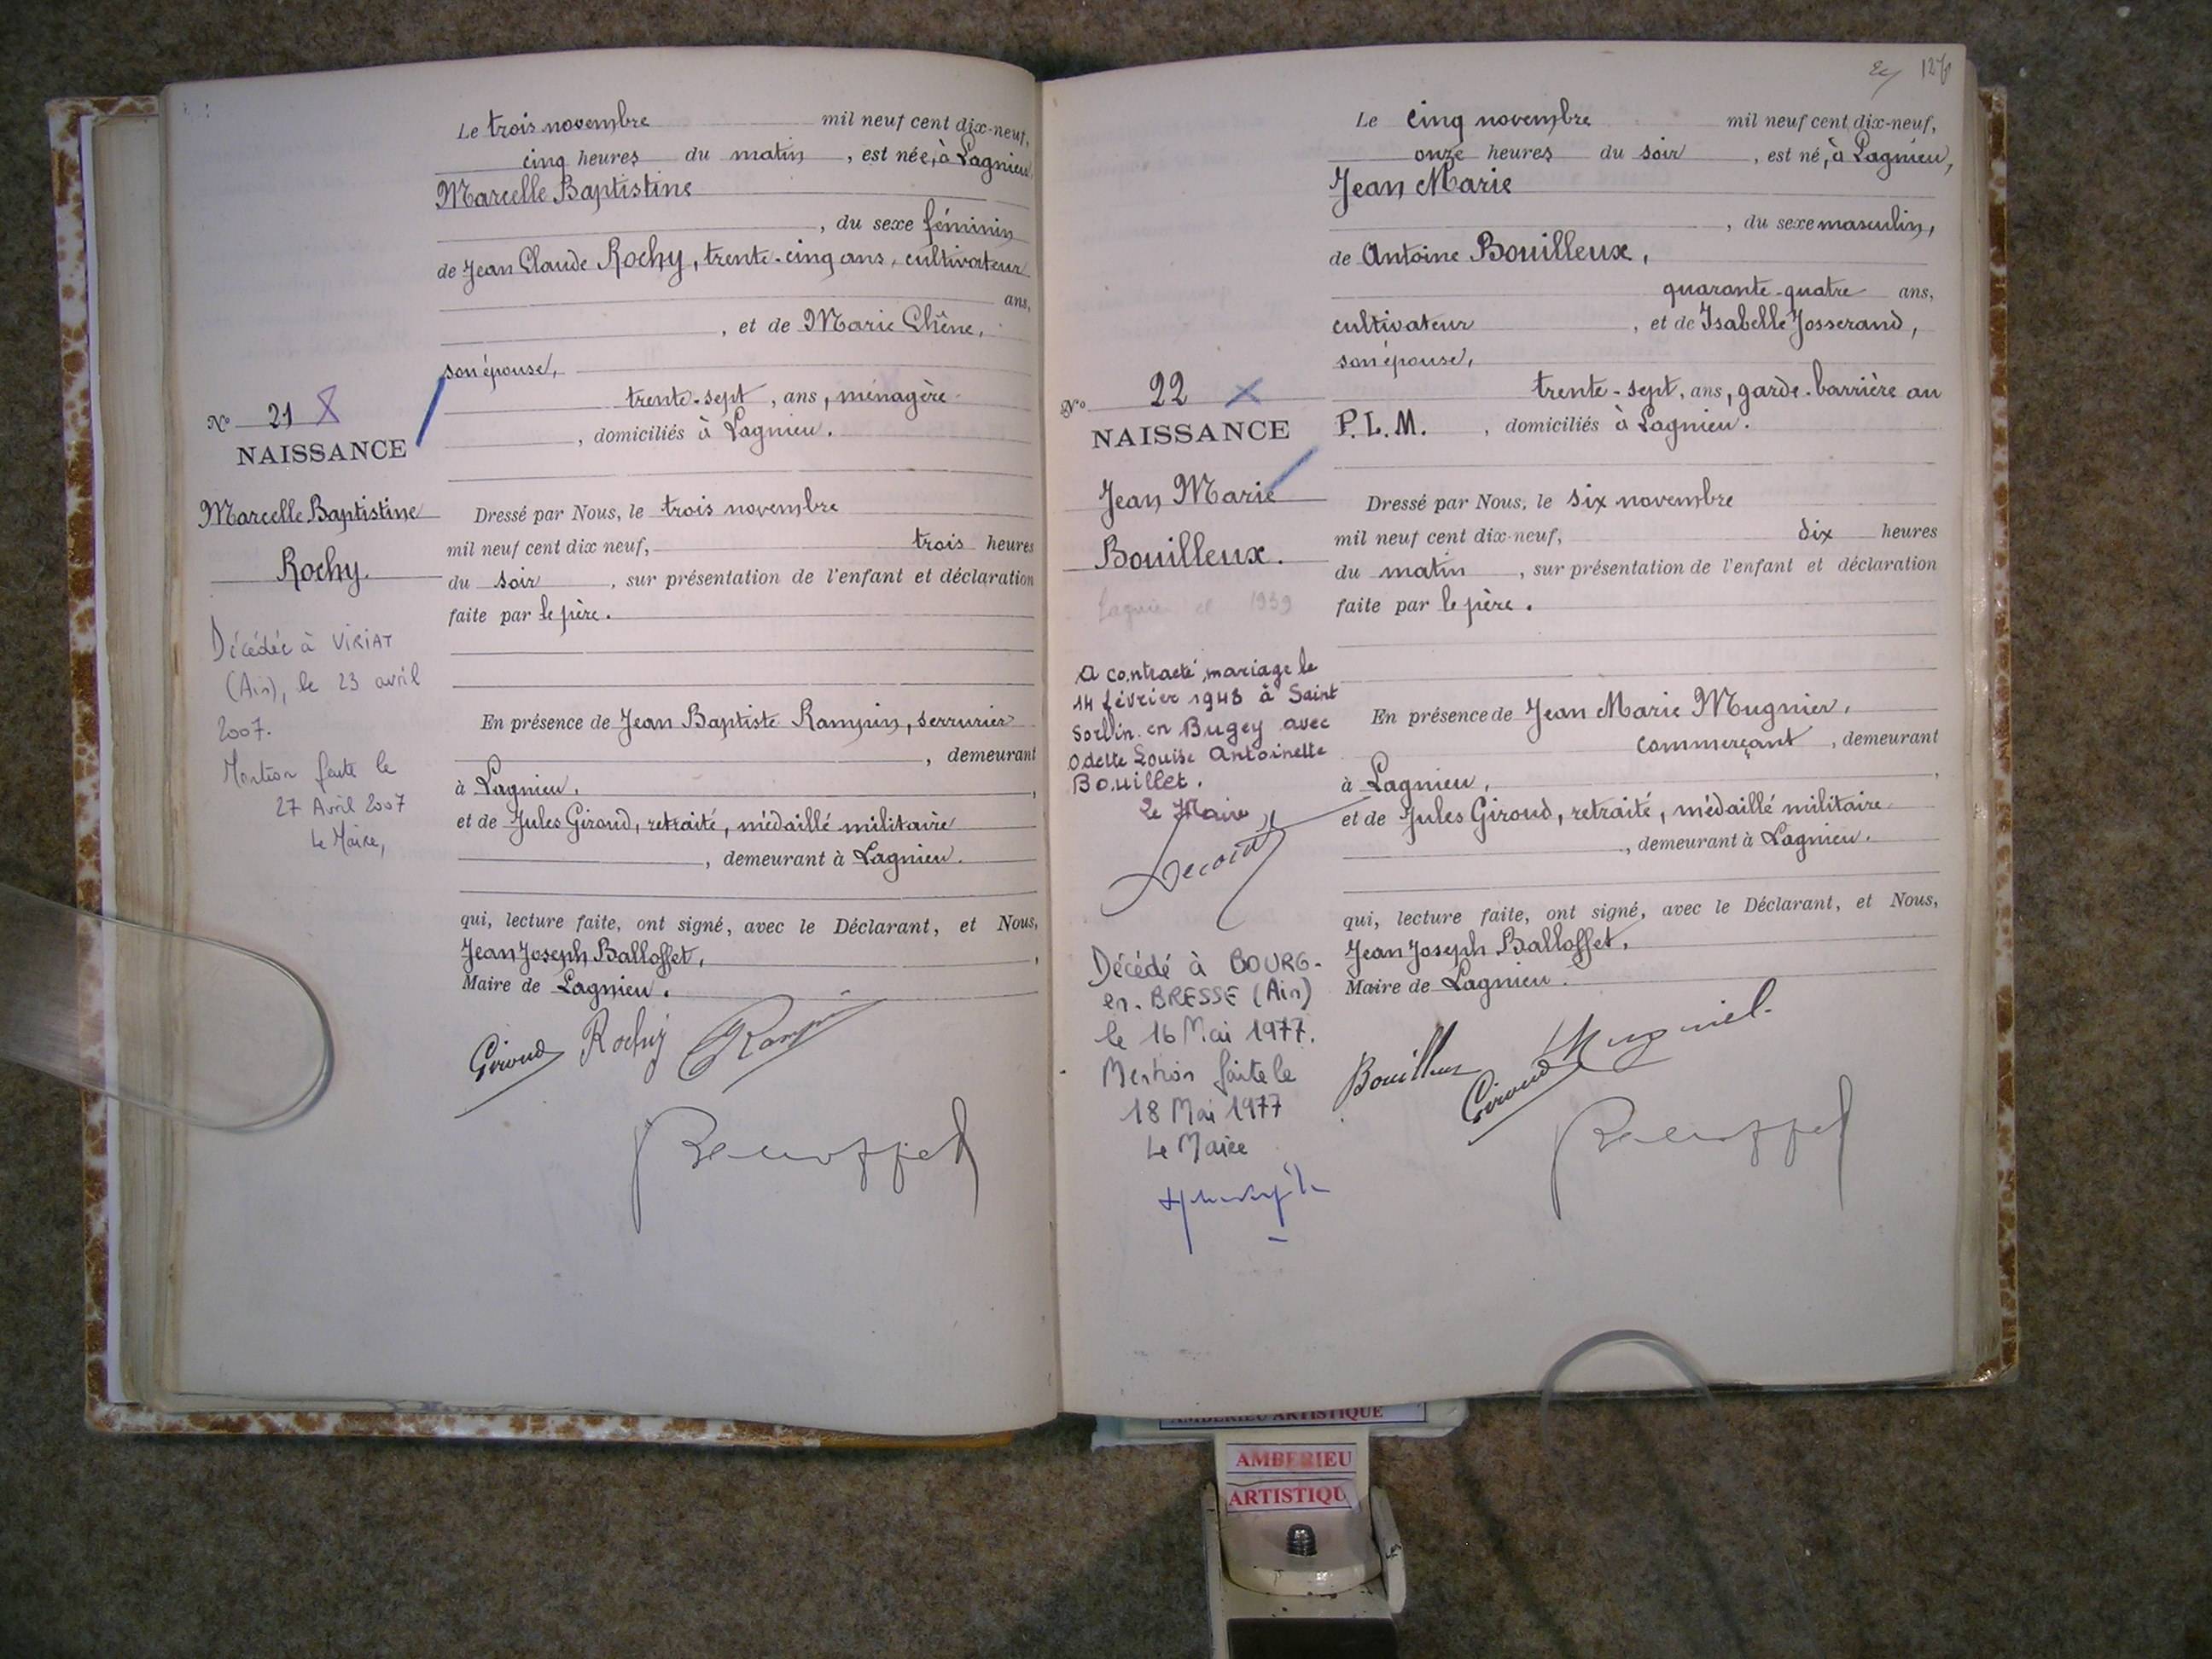 Le trois novembre mil neuf cent dix-neuf,
cinq heures du matin, est née, à Lagnieu,
Marcelle Baptistine
, du sexe féminin
de Jean Claude Rochy, trente-cinq ans, cultivateur
ans,
, et de Marie Chêne,
son épouse,
trente-sept, ans, ménagère
, domiciliés à Lagnieu.
N° 21
NAISSANCE
Marcelle Baptistine
Rochy.
Décédée à VIRIAT
(Ain), le 23 avril
2007.
Mention faite le
27 Avril 2007
Le Maire,
Dressé par Nous, le trois novembre
mil neuf cent dix neuf, trois heures
du soir, sur présentation de l'enfant et déclaration
faite par le père.
En présence de Jean Baptiste Rampin, serrurier
, demeurant
à Lagnieu,
et de Jules Giroud, retraité, médaillé militaire
, demeurant à Lagnieu.
qui, lecture faite, ont signé, avec le Déclarant, et Nous,
Jean Joseph Balloffet,
Maire de Lagnieu.
Giroud Rochy Rampin
127
Le cinq novembre mil neuf cent dix-neuf,
onze heures du soir, est né, à Lagnieu,
Jean Marie
, du sexe masculin,
de Antoine Bouilleux,
quarante-quatre ans,
cultivateur, et de Isabelle Josserand,
son épouse,
trente-sept, ans, garde-barrière au
P.L.M., domiciliés à Lagnieu.
N° 22
NAISSANCE
Jean Marie
Bouilleux.
Lagnieu 1939
A contracté mariage le
14 février 1948 à Saint
Sorlin en Bugey avec
Odette Louise Antoinette
Bouillet.
Le Maire
Décédé à BOURG-
en-BRESSE (Ain)
le 16 Mai 1977.
Mention faite le
18 Mai 1977
Le Maire
Dressé par Nous, le six novembre
mil neuf cent dix-neuf, dix heures
du matin, sur présentation de l'enfant et déclaration
faite par le père.
En présence de Jean Marie Mugnier,
commerçant, demeurant
à Lagnieu,
et de Jules Giroud, retraité, médaillé militaire
, demeurant à Lagnieu.
qui, lecture faite, ont signé, avec le Déclarant, et Nous,
Jean Joseph Balloffet,
Maire de Lagnieu.
Bouilleux Giroud
AMBERIEU ARTISTIQUE
AMBERIEU
ARTISTIQU